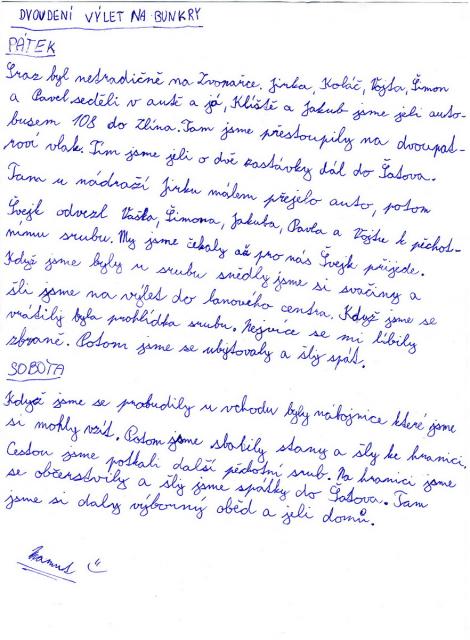 DVOUDENÍ VÝLET NA BUNKRY
PÁTEK
Sraz byl netradičně na Zvonařce. Jirka, Koláč, Vojta, Šimon
a Pavel seděli v autě a já, Klíště a Jakub jsme jeli auto-
busem 108 do Zlína. Tam jsme přestoupily na dvoupat-
roví vlak. Tím jsme jeli o dvě zastávky dál do Šatova.
Tam u nádraží Jirku málem přejelo auto, potom
Švejk odvezl Vaška, Šimona, Jakuba, Pavla a Vojtu k pěchot-
nímu srubu. My jsme čekaly až pro nás Švejk přijede.
Když jsme byly u srubu snědly jsme si svačiny a
šli jsme na výlet do lanového centra. Když jsme se
vrátily byla prohlídka srubu. Nejvíce se mi líbily
zbraně. Potom jsme se ubytovaly a šly spát.
SOBOTA
Když jsme se probudily u vchodu byly nábojnice které jsme
si mohly vzít. Potom jsme sbalily stany a šly ke hranici.
Cestou jsme potkali další pěchotní srub. Na hranici jsme
se občerstvily a šly jsme spátky do Šatova. Tam
jsme si daly výborný oběd a jeli domů.